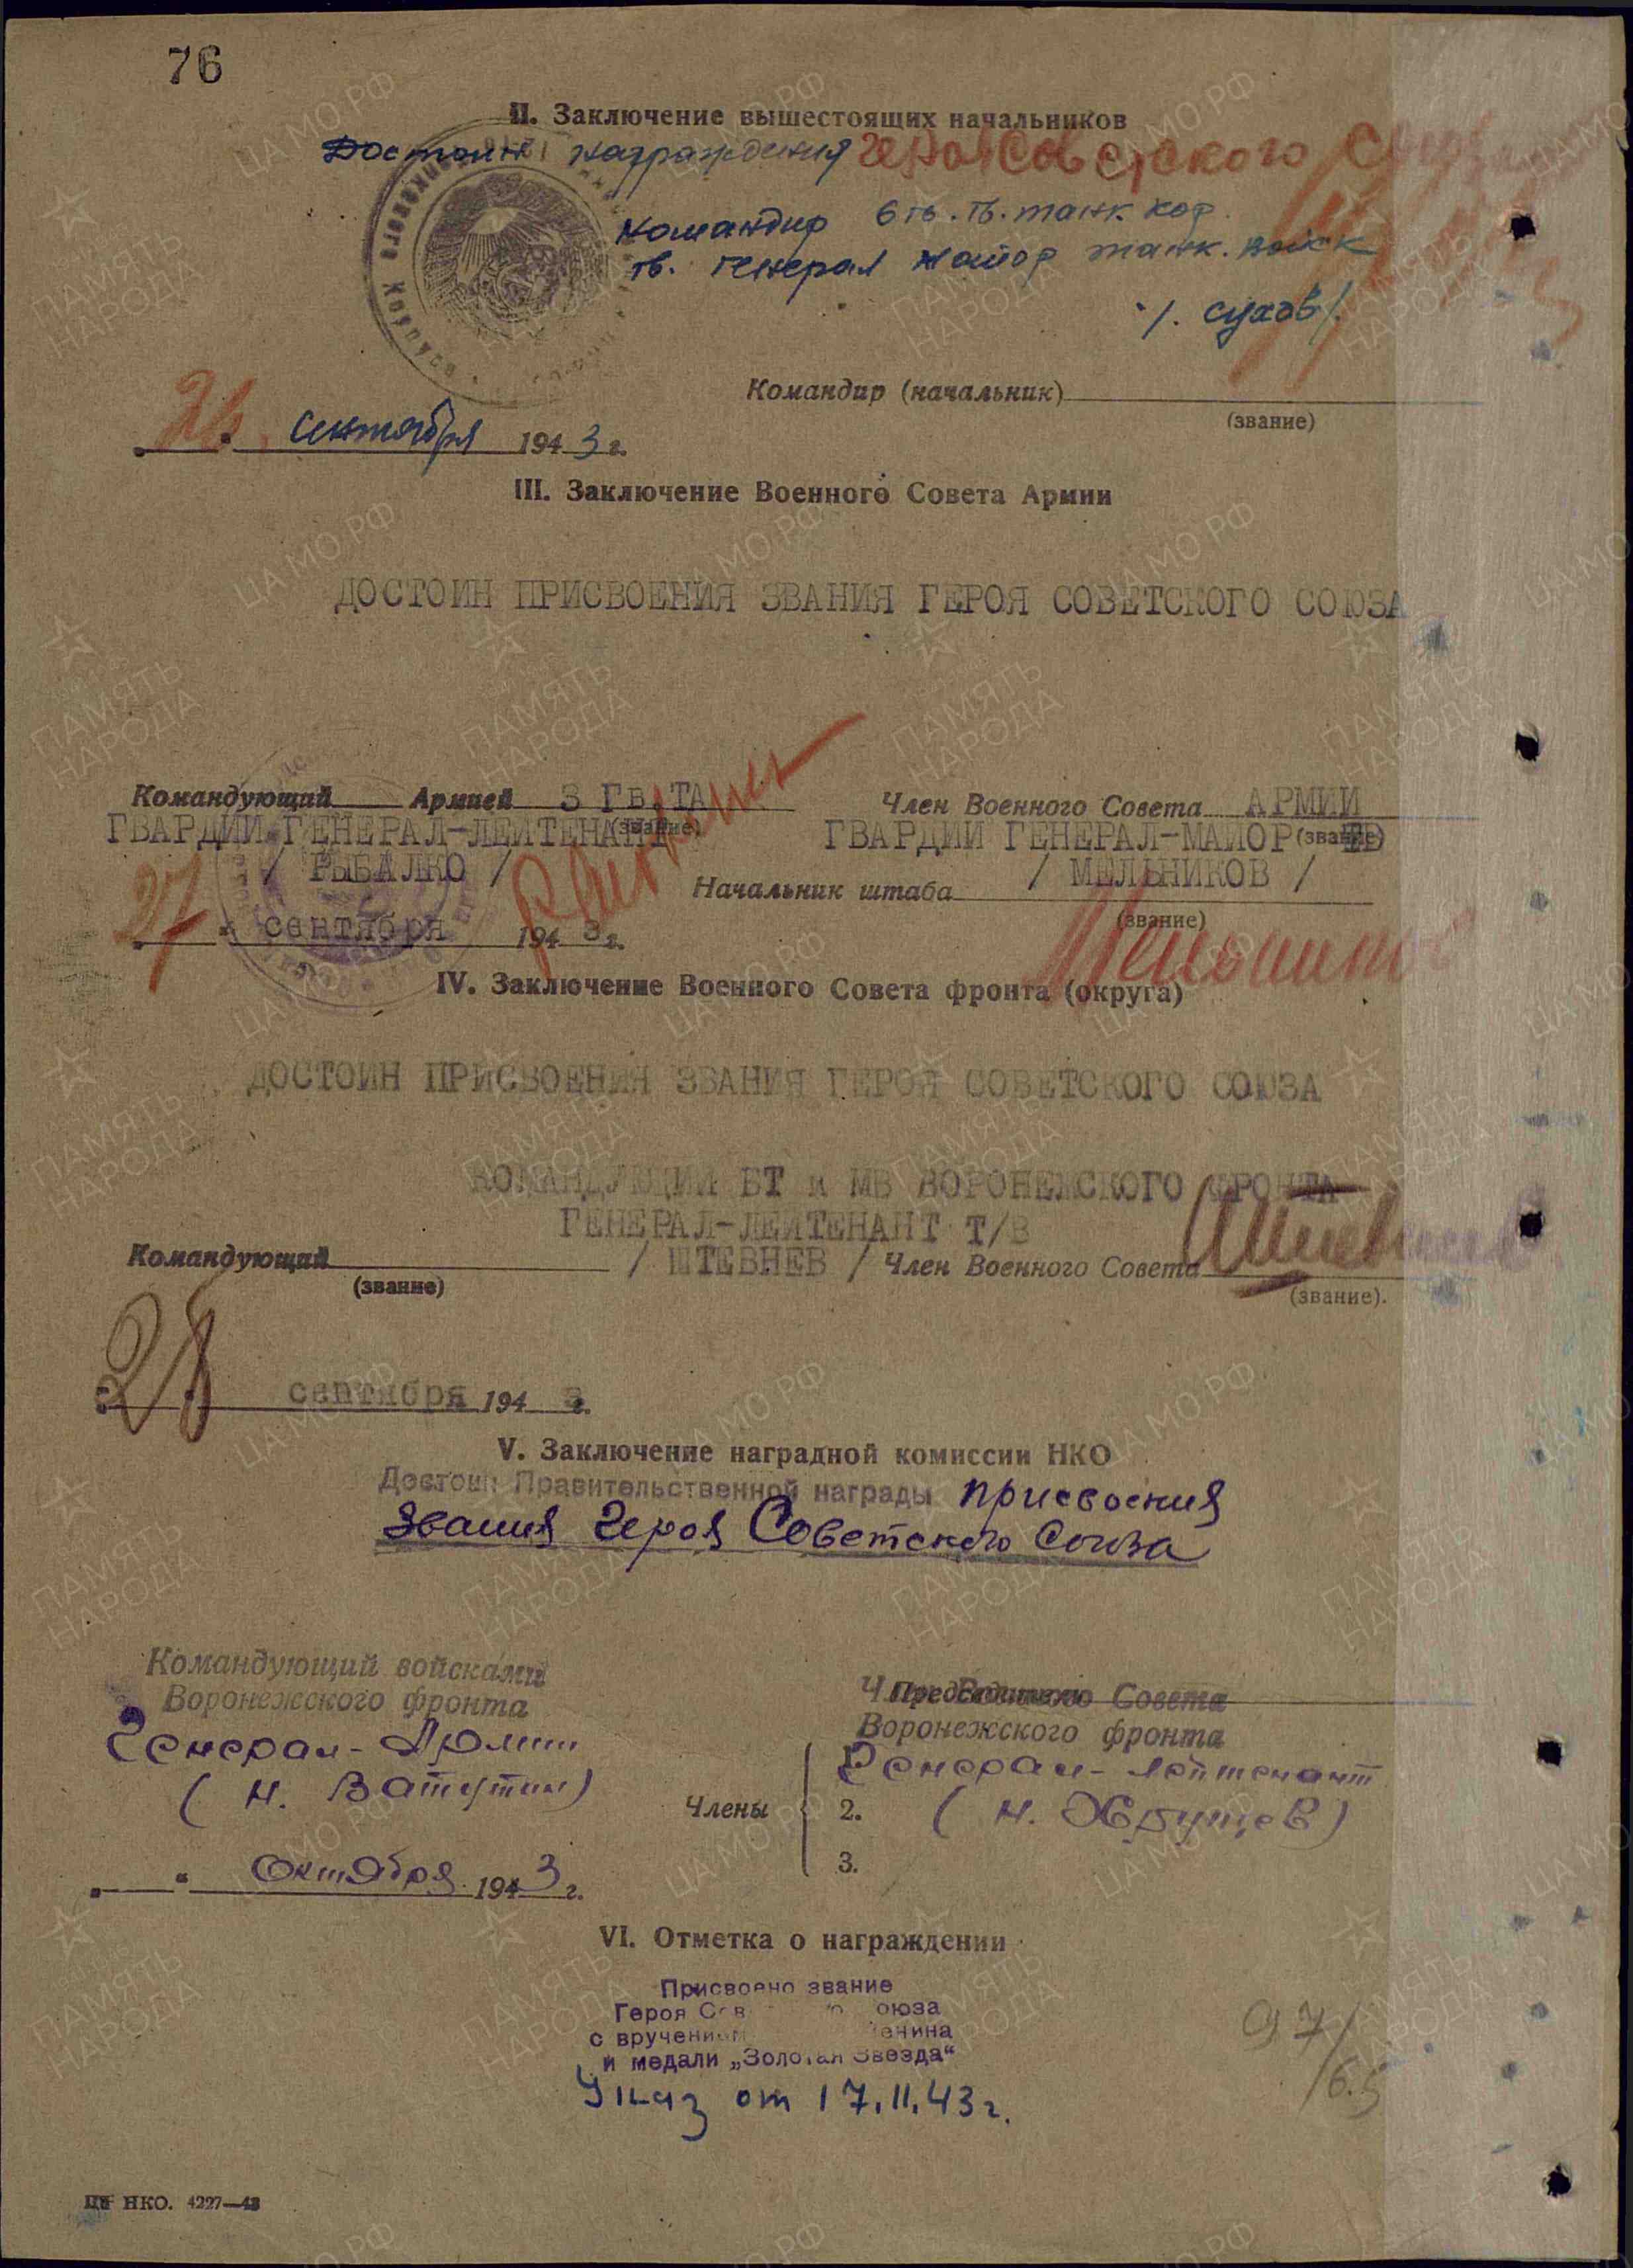 76
II. Заключение вышестоящих начальников
Достоин награждения Героя Советского Союза
Командир 6 гв. тв. танк. кор.
гв. генерал майор танк. войск
/. Сухов /.
Командир (начальник)
(звание)
„26“ сентября 1943 г.
III. Заключение Военного Совета Армии
ДОСТОИН ПРИСВОЕНИЯ ЗВАНИЯ ГЕРОЯ СОВЕТСКОГО СОЮЗА
Командующий Армией 3 Гв.ТА
ГВАРДИИ ГЕНЕРАЛ-ЛЕЙТЕНАНТ (звание)
/ РЫБАЛКО /
„27“ сентября 1943 г.
Член Военного Совета АРМИИ
ГВАРДИИ ГЕНЕРАЛ-МАЙОР (звание)
/ МЕЛЬНИКОВ /
Начальник штаба
(звание)
Мельников
IV. Заключение Военного Совета фронта (округа)
ДОСТОИН ПРИСВОЕНИЯ ЗВАНИЯ ГЕРОЯ СОВЕТСКОГО СОЮЗА
КОМАНДУЮЩИЙ БТ и МВ ВОРОНЕЖСКОГО ФРОНТА
ГЕНЕРАЛ-ЛЕЙТЕНАНТ Т/В
Командующий / ШТЕВНЕВ / Член Военного Совета
(звание) (звание).
„28“ сентября 1943 г.
V. Заключение наградной комиссии НКО
Достоин Правительственной награды присвоения
звания Героя Советского Союза
Командующий войсками
Воронежского фронта
Генерал-Армии
(Н. Ватутин)
Председатель
Член Военного Совета
Воронежского фронта
Генерал-лейтенант
Члены 2. (Н. Хрущев)
3.
„ “ Октября 1943 г.
VI. Отметка о награждении
Присвоено звание
Героя Сов о оюза
с вручением енина
и медали „Золотая Звезда“
Указ от 17.11.43 г.
97/
/6.5
ЦТ НКО. 4227—43
ПАМЯТЬ НАРОДА
ЦА МО РФ